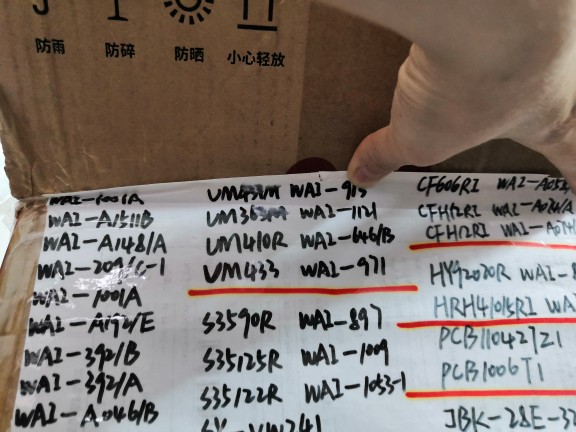 防雨 防碎 防晒 小心轻放
WAI-1001A
WAI-A1511B
WAI-A1481A
WAI-209/C-1
WAI-1001A
WAI-A192/E
WAI-392/B
WAI-392/A
WAI-A046/B
WAI-915
WAI-1121
VM410R WAI-646/B
VM433 WAI-971
S3590R WAI-897
S35125R WAI-1009
S35122R WAI-1053-1
CF606RI
CFH12RI
CFH12RI
HY92020R WAI-8
HRH41015RI WA
PCB11042721
PCB1006T1
JBK-28E-32